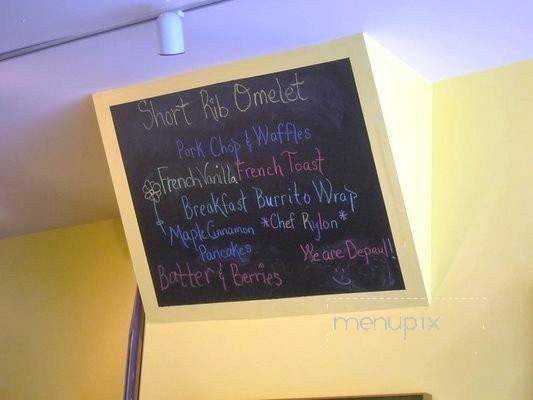 Short Rib Omelet
Pork Chop & Waffles
French Vanilla French Toast
Breakfast Burrito Wrap
Maple Cinnamon Pancakes
*Chef Rylon*
Batter & Berries
We are Depaul!!
menupix